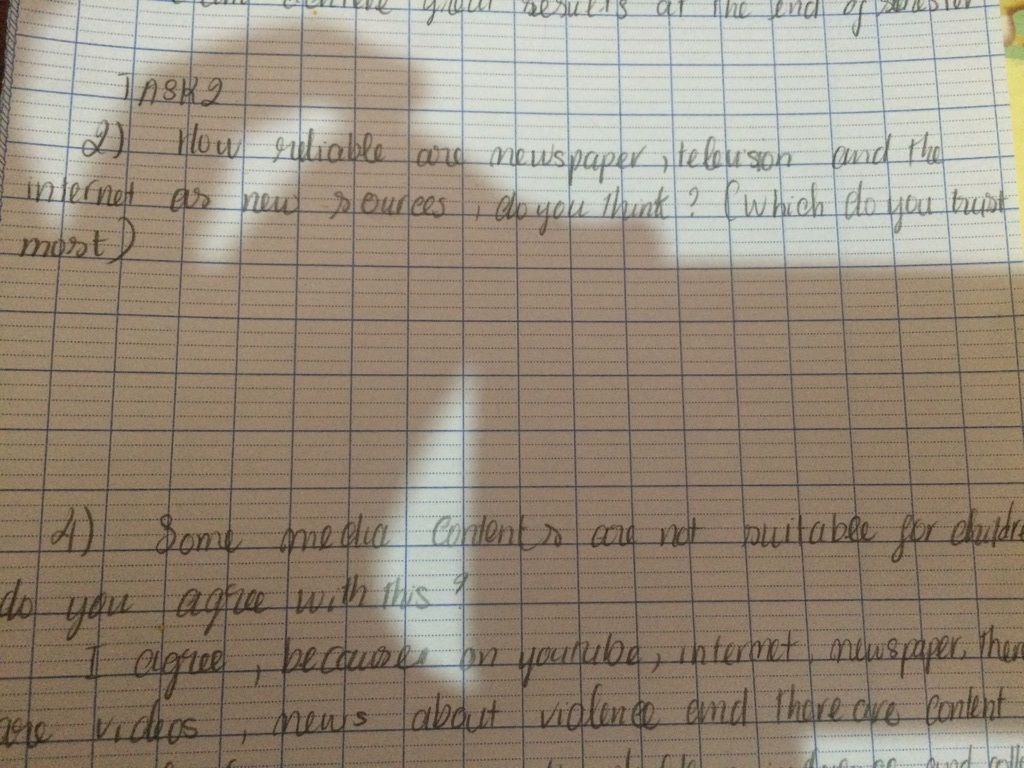 your results at the end of
TASK 2
2) How reliable are newspaper, televison and the
internet as new sources, do you think? (which do you trust
most)
4) Some media contents are not suitable for
do you agree with this?
I agree, because on youtube, internet, newspaper,
are videos, news about violence and there are content
and